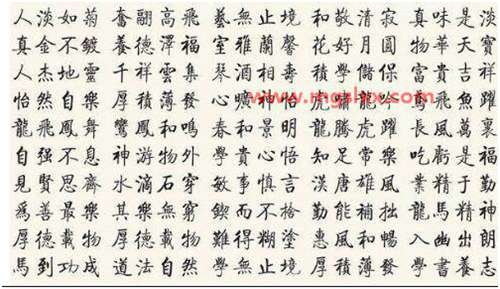 人淡如菊 奮翮高飛 藝無止境 和敬清寂 真味是淡
真金不鍍 養德澤福 室雅蘭馨 花好月圓 物華天寶
人杰地靈 千祥雲集 琴酒相 學儲 富貴吉祥
怡然自樂 厚積薄發 心曠神怡 虎 躍 飛魚躍
龍飛鳳舞 鸞鳳和鳴 春和景明 龍騰虎躍 長風萬里
自强不息 神游物外 學貴心悟 知足常樂 吃虧是福
見賢思齊 水滴石穿 敏事慎言 漢唐雄風 業精于勤
爲善最樂 其樂無窮 鍥而不捨 勤能補拙 龍馬精神
厚德載物 厚德載物 難得糊塗 惠風和暢 入幽出朗
馬到功成 道法自然 學無止境 厚積薄發 學書養志